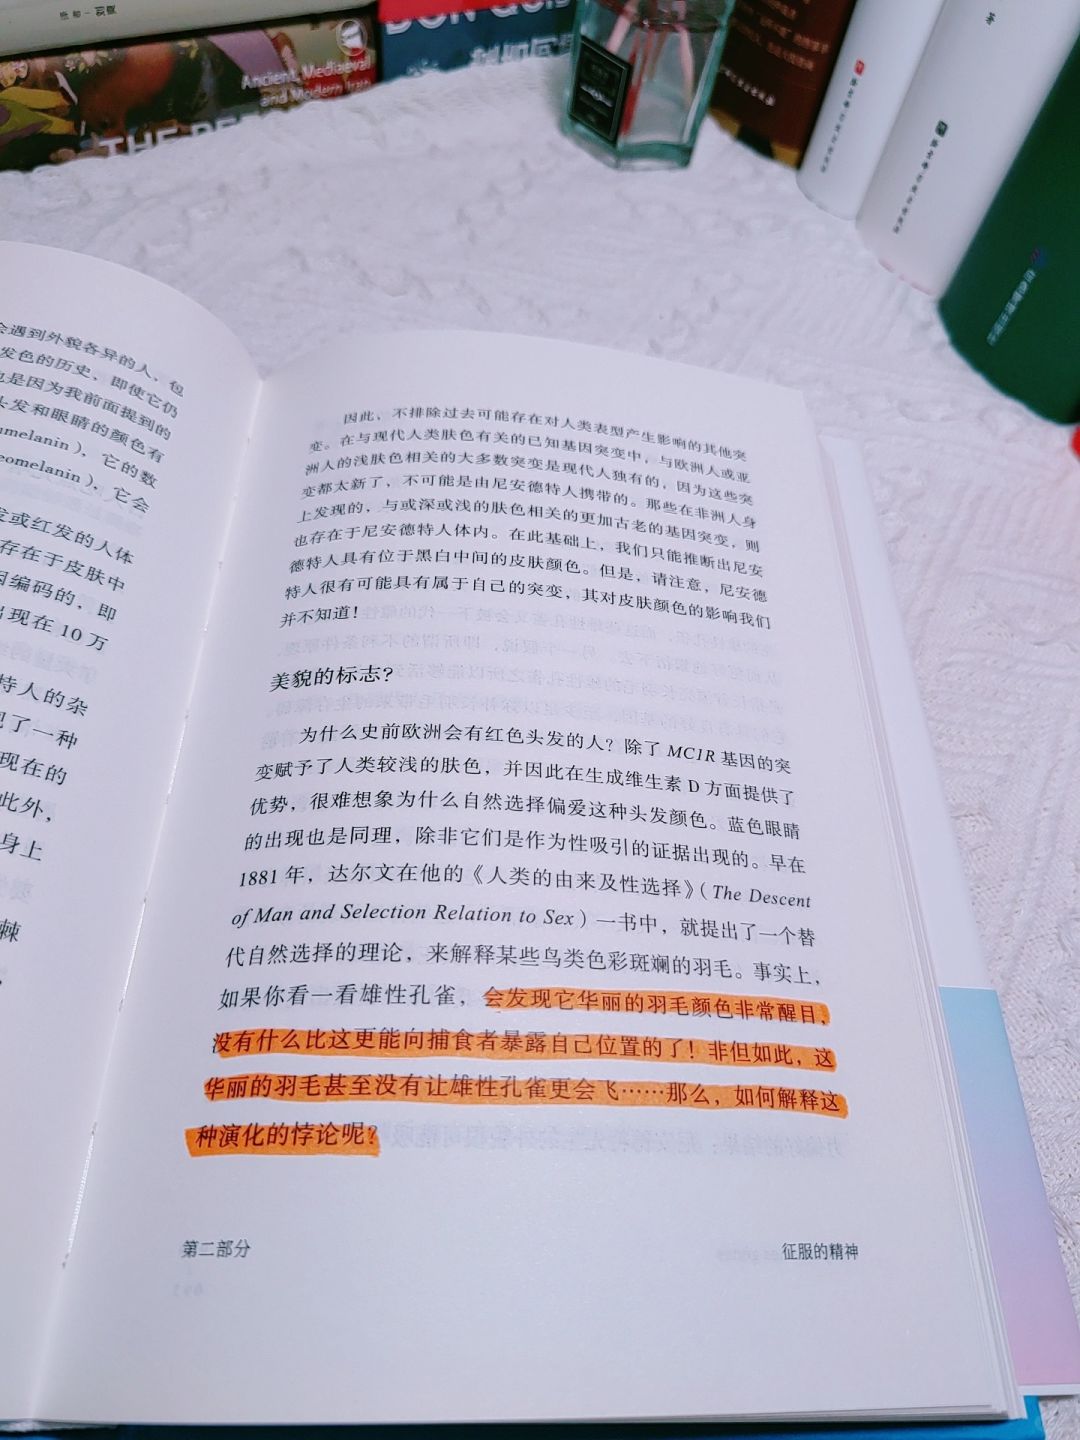 译者 刘夏
Ancient, Mediaeval
and Modern Iran
DON QUIX
会遇到外貌各异的人，包
发色的历史，即使它仍
也是因为我前面提到的
头发和眼睛的颜色有
umelanin），它的数
eomelanin），它会
发或红发的人体
存在于皮肤中
因编码的，即
出现在 10 万
特人的杂
现了一种
现在的
此外，
身上
棘
因此，不排除过去可能存在对人类表型产生影响的其他突
变。在与现代人类肤色有关的已知基因突变中，与欧洲人或亚
洲人的浅肤色相关的大多数突变是现代人独有的，因为这些突
变都太新了，不可能是由尼安德特人携带的。那些在非洲人身
上发现的，与或深或浅的肤色相关的更加古老的基因突变，则
也存在于尼安德特人体内。在此基础上，我们只能推断出尼安
德特人具有位于黑白中间的皮肤颜色。但是，请注意，尼安德
特人很有可能具有属于自己的突变，其对皮肤颜色的影响我们
并不知道！
美貌的标志？
为什么史前欧洲会有红色头发的人？除了 MC1R 基因的突
变赋予了人类较浅的肤色，并因此在生成维生素 D 方面提供了
优势，很难想象为什么自然选择偏爱这种头发颜色。蓝色眼睛
的出现也是同理，除非它们是作为性吸引的证据出现的。早在
1881 年，达尔文在他的《人类的由来及性选择》（The Descent
of Man and Selection Relation to Sex）一书中，就提出了一个替
代自然选择的理论，来解释某些鸟类色彩斑斓的羽毛。事实上，
如果你看一看雄性孔雀，会发现它华丽的羽毛颜色非常醒目，
没有什么比这更能向捕食者暴露自己位置的了！非但如此，这
华丽的羽毛甚至没有让雄性孔雀更会飞……那么，如何解释这
种演化的悖论呢？
第二部分
征服的精神